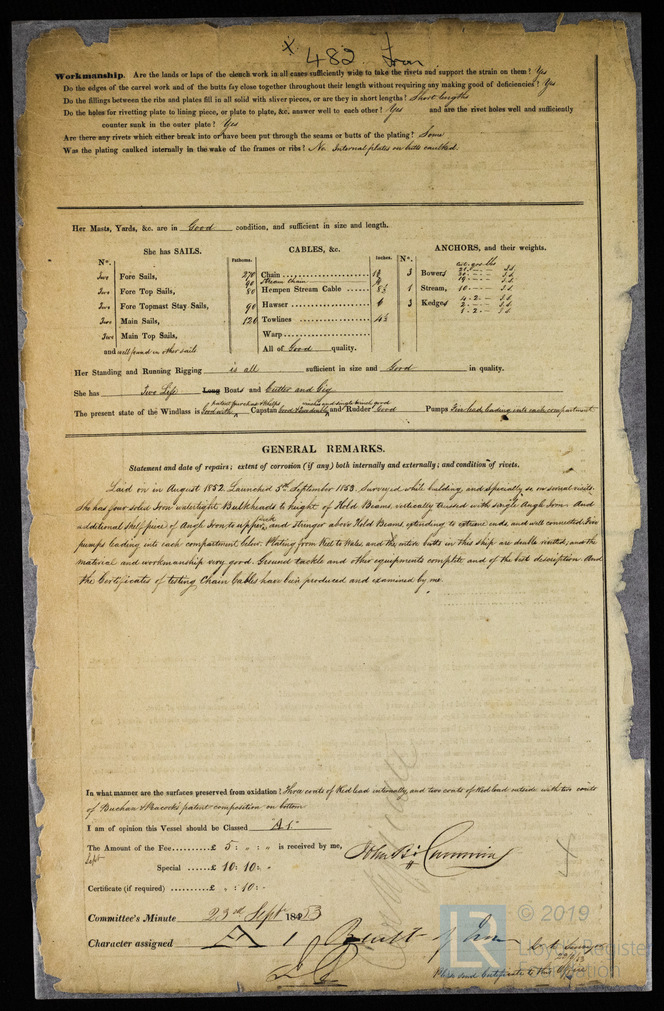 482 Iron
Workmanship. Are the lands or laps of the clench work in all cases sufficiently wide to take the rivets and support the strain on them? Yes
Do the edges of the carvel work and of the butts fay close together throughout their length without requiring any making good of deficiencies? Yes
Do the fillings between the ribs and plates fill in all solid with sliver pieces, or are they in short lengths? Short lengths
Do the holes for rivetting plate to lining piece, or plate to plate, &c. answer well to each other? Yes and are the rivet holes well and sufficiently
counter sunk in the outer plate? Yes
Are there any rivets which either break into or have been put through the seams or butts of the plating? Some
Was the plating caulked internally in the wake of the frames or ribs? No. Internal plates on butts caulked.
Her Masts, Yards, &c. are in Good condition, and sufficient in size and length.
She has SAILS. CABLES, &c. ANCHORS, and their weights.
N°. Fathoms. Inches. N°.
Two Fore Sails, 270 Chain 3 Bowers
90 Stream chain
Two Fore Top Sails, 80 Hempen Stream Cable 8½ 1 Stream,
Two Fore Topmast Stay Sails, 90 Hawser 6 3 Kedges
Two Main Sails, 120 Towlines 4½
Two Main Top Sails, Warp
and well found in other sails All of Good quality.
Her Standing and Running Rigging is all sufficient in size and Good in quality.
She has Two Life Long Boats and Cutter and Gig
The present state of the Windlass is Good with patent purchase Capstan Good and Rudder Good Pumps Five lead leading into each compartment
GENERAL REMARKS.
Statement and date of repairs; extent of corrosion (if any) both internally and externally; and condition of rivets.
Laid on in August 1852. Launched 5th September 1853. Surveyed while building, and specially so on several visits.
She has four solid Iron watertight Bulkheads to height of Hold Beams, vertically trussed with single Angle Iron. And
additional shelf piece of Angle Iron to upper deck, and stringer above Hold Beams extending to extreme ends and well connected. Five
pumps leading into each compartment below. Plating from Keel to Wales and the entire butts in this ship are double riveted, and the
material and workmanship very good. Ground tackle and other equipments complete and of the best description. And
the Certificates of testing Chain Cables have been produced and examined by me.
In what manner are the surfaces preserved from oxidation? Three coats of Red lead internally, and two coats of Red lead outside with two coats
of Buchan & Peacock's patent composition on bottom
I am of opinion this Vessel should be Classed A 1
The Amount of the Fee £ 5 : „ : „ is received by me,
Special £ 10 : 10 : „
Certificate (if required) £ „ : 10 : „
Committee's Minute 23rd Sept 1853
Character assigned A 1 Built of Iron
Please send Certificate to this Office
LR
© 2019
Lloyd's Register
Foundation